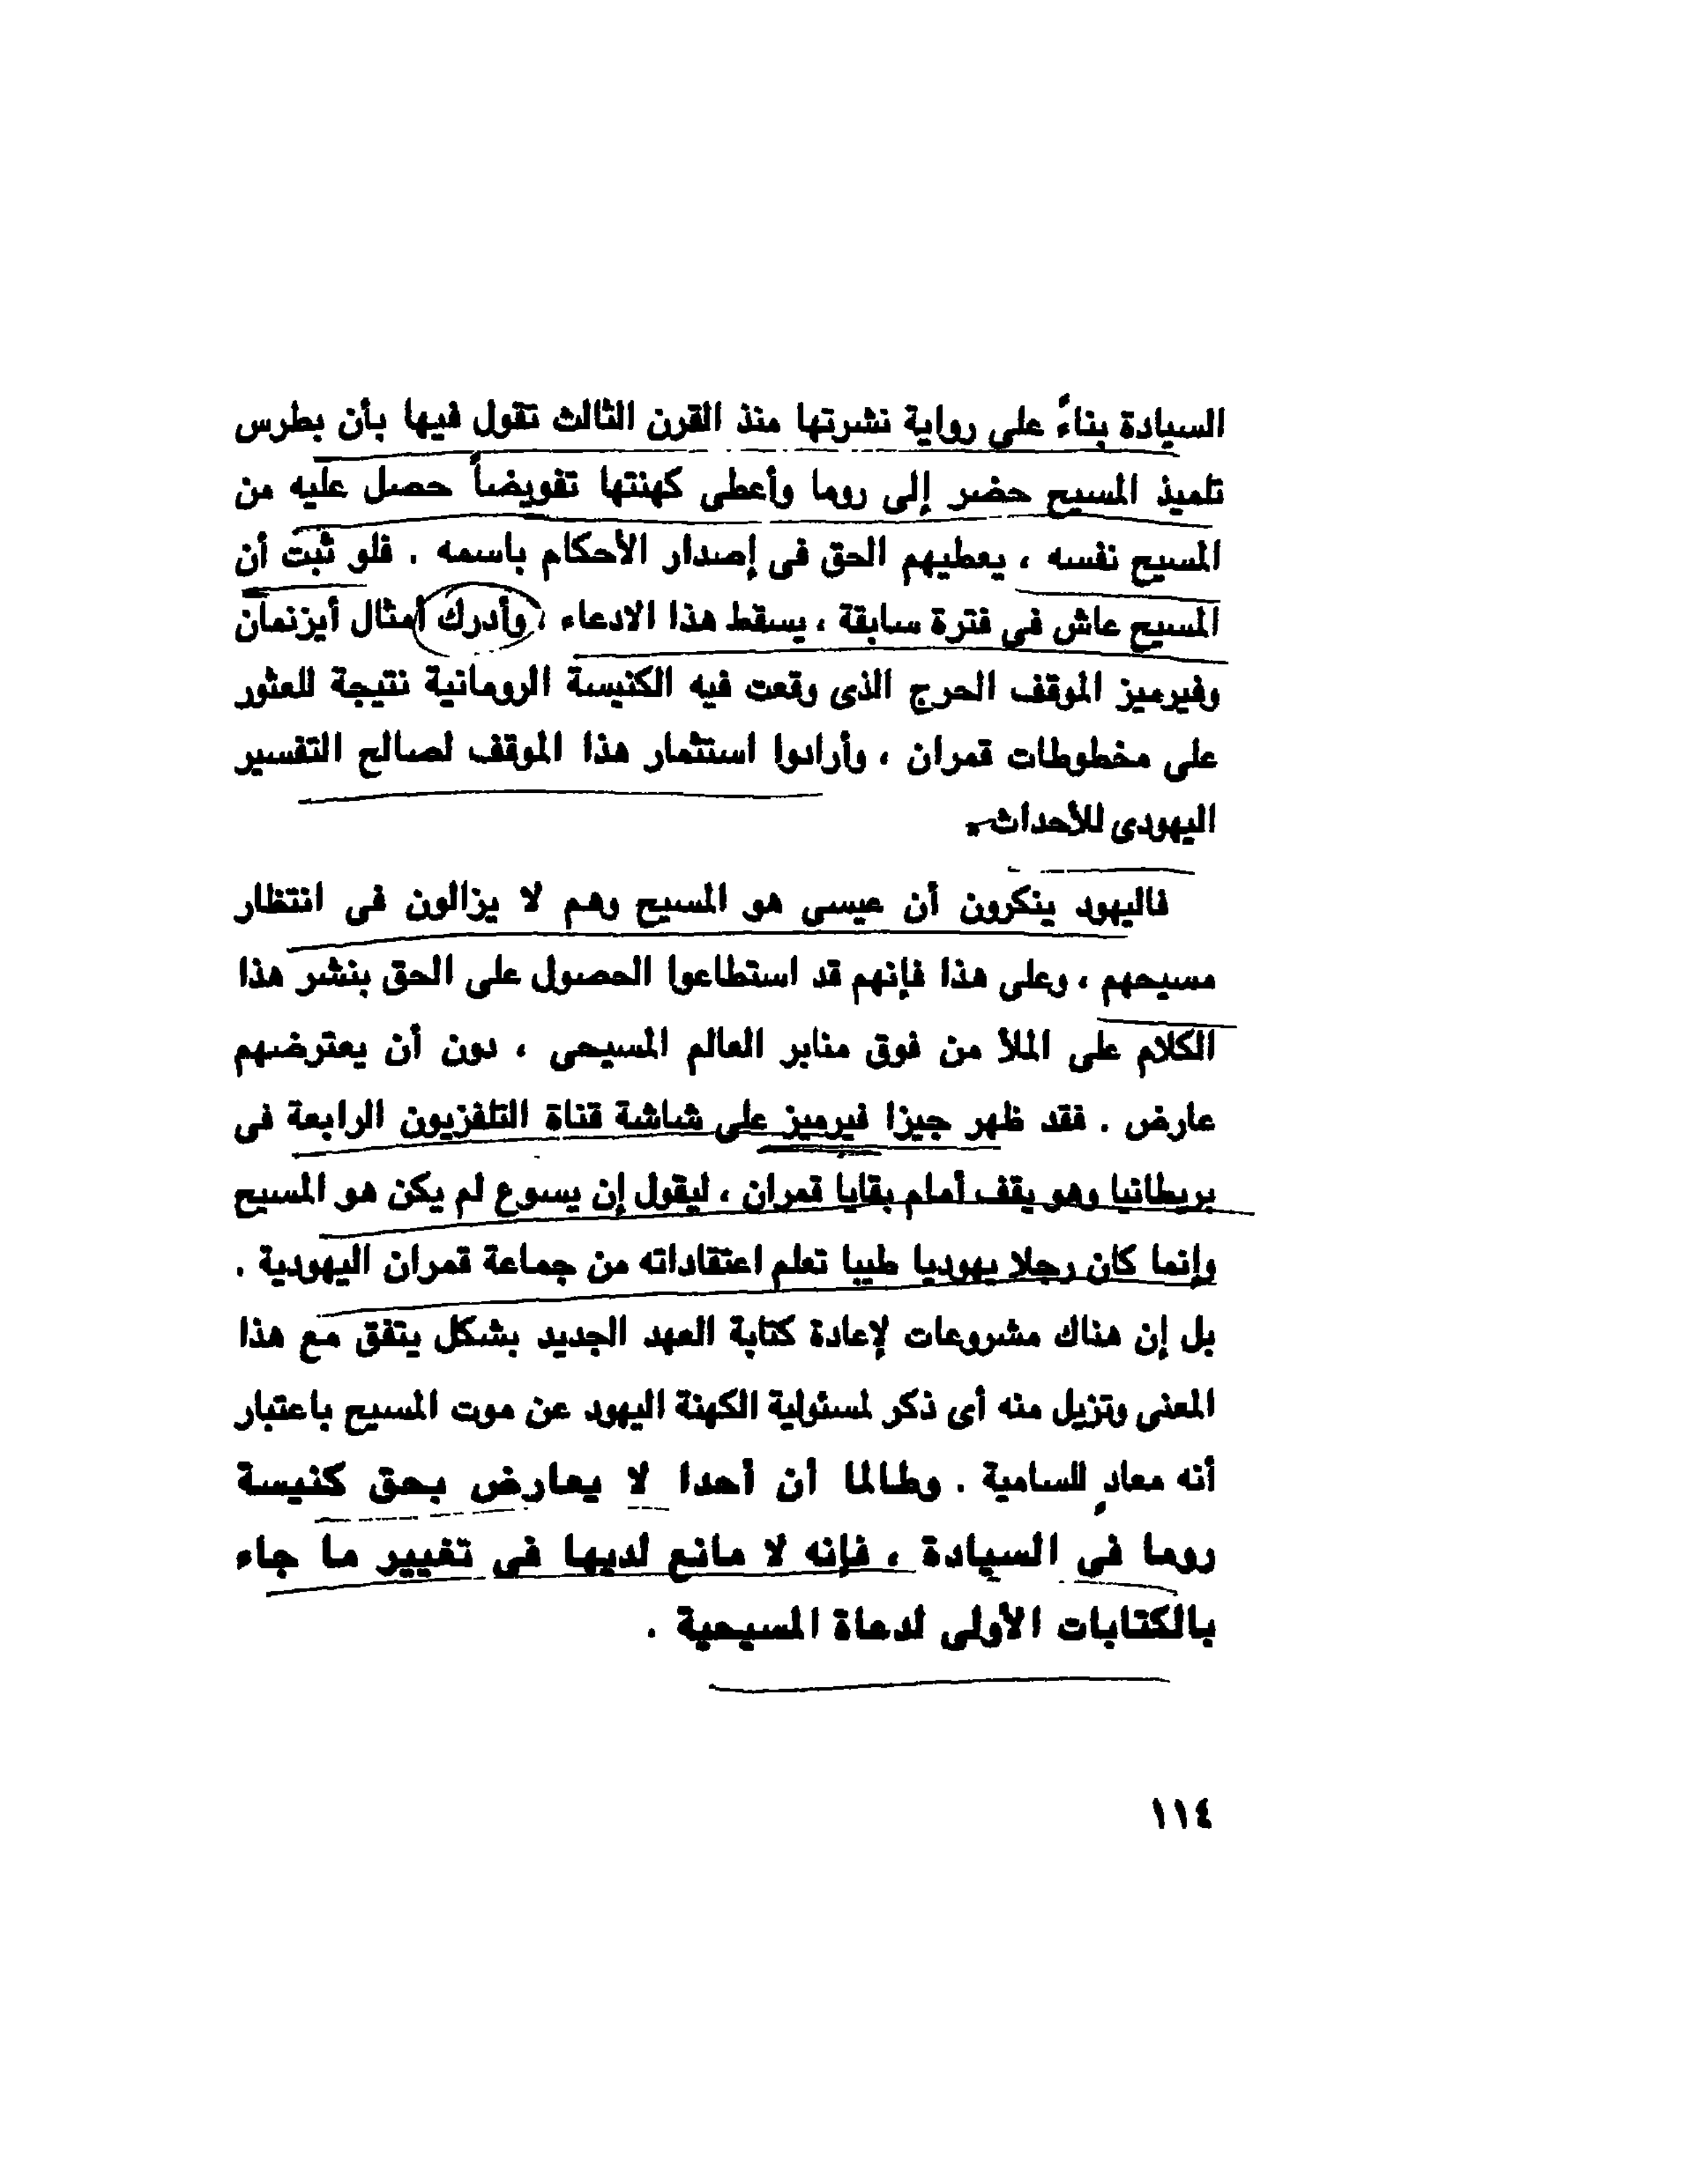 السيادة بناءً على رواية نشرتها منذ القرن الثالث تقول فيها بأن بطرس
تلميذ المسيح حضر إلى روما وأعطى كهنتها تفويضاً حصل عليه من
المسيح نفسه ، يعطيهم الحق فى إصدار الأحكام باسمه . فلو ثبت أن
المسيح عاش فى فترة سابقة ، يسقط هذا الادعاء ، وأدرك أمثال أيزنمان
وفيرميز الموقف الحرج الذى وقعت فيه الكنيسة الرومانية نتيجة للعثور
على مخطوطات قمران ، وأرادوا استثمار هذا الموقف لصالح التفسير
اليهودى للأحداث .
فاليهود ينكرون أن عيسى هو المسيح وهم لا يزالون فى انتظار
مسيحهم ، وعلى هذا فإنهم قد استطاعوا الحصول على الحق بنشر هذا
الكلام على الملأ من فوق منابر العالم المسيحى ، دون أن يعترضهم
عارض . فقد ظهر جيزا فيرميز على شاشة قناة التلفزيون الرابعة فى
بريطانيا وهو يقف أمام بقايا قمران ، ليقول إن يسوع لم يكن هو المسيح
وإنما كان رجلا يهوديا طيبا تعلم اعتقاداته من جماعة قمران اليهودية .
بل إن هناك مشروعات لإعادة كتابة العهد الجديد بشكل يتفق مع هذا
المعنى وتزيل منه أى ذكر لمسئولية الكهنة اليهود عن موت المسيح باعتبار
أنه معادٍ للسامية . وطالما أن أحدا لا يعارض بحق كنيسة
روما فى السيادة ، فإنه لا مانع لديها فى تغيير ما جاء
بالكتابات الأولى لدعاة المسيحية .
١١٤